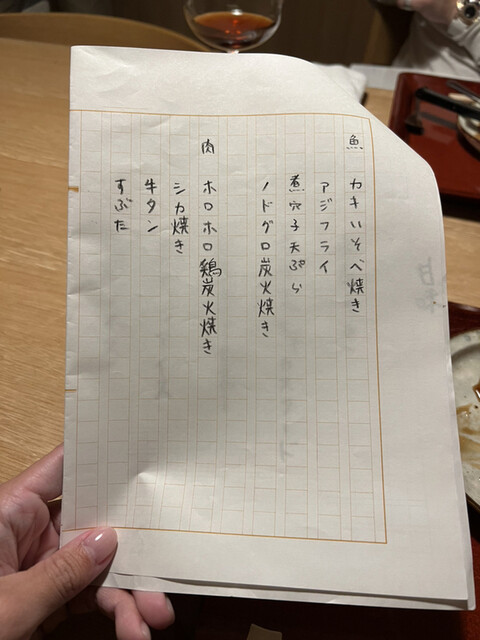 魚 カキいそべ焼き
アジフライ
煮穴子天ぷら
ノドグロ炭火焼き
肉 ホロホロ鶏炭火焼き
シカ焼き
牛タン
すぶた